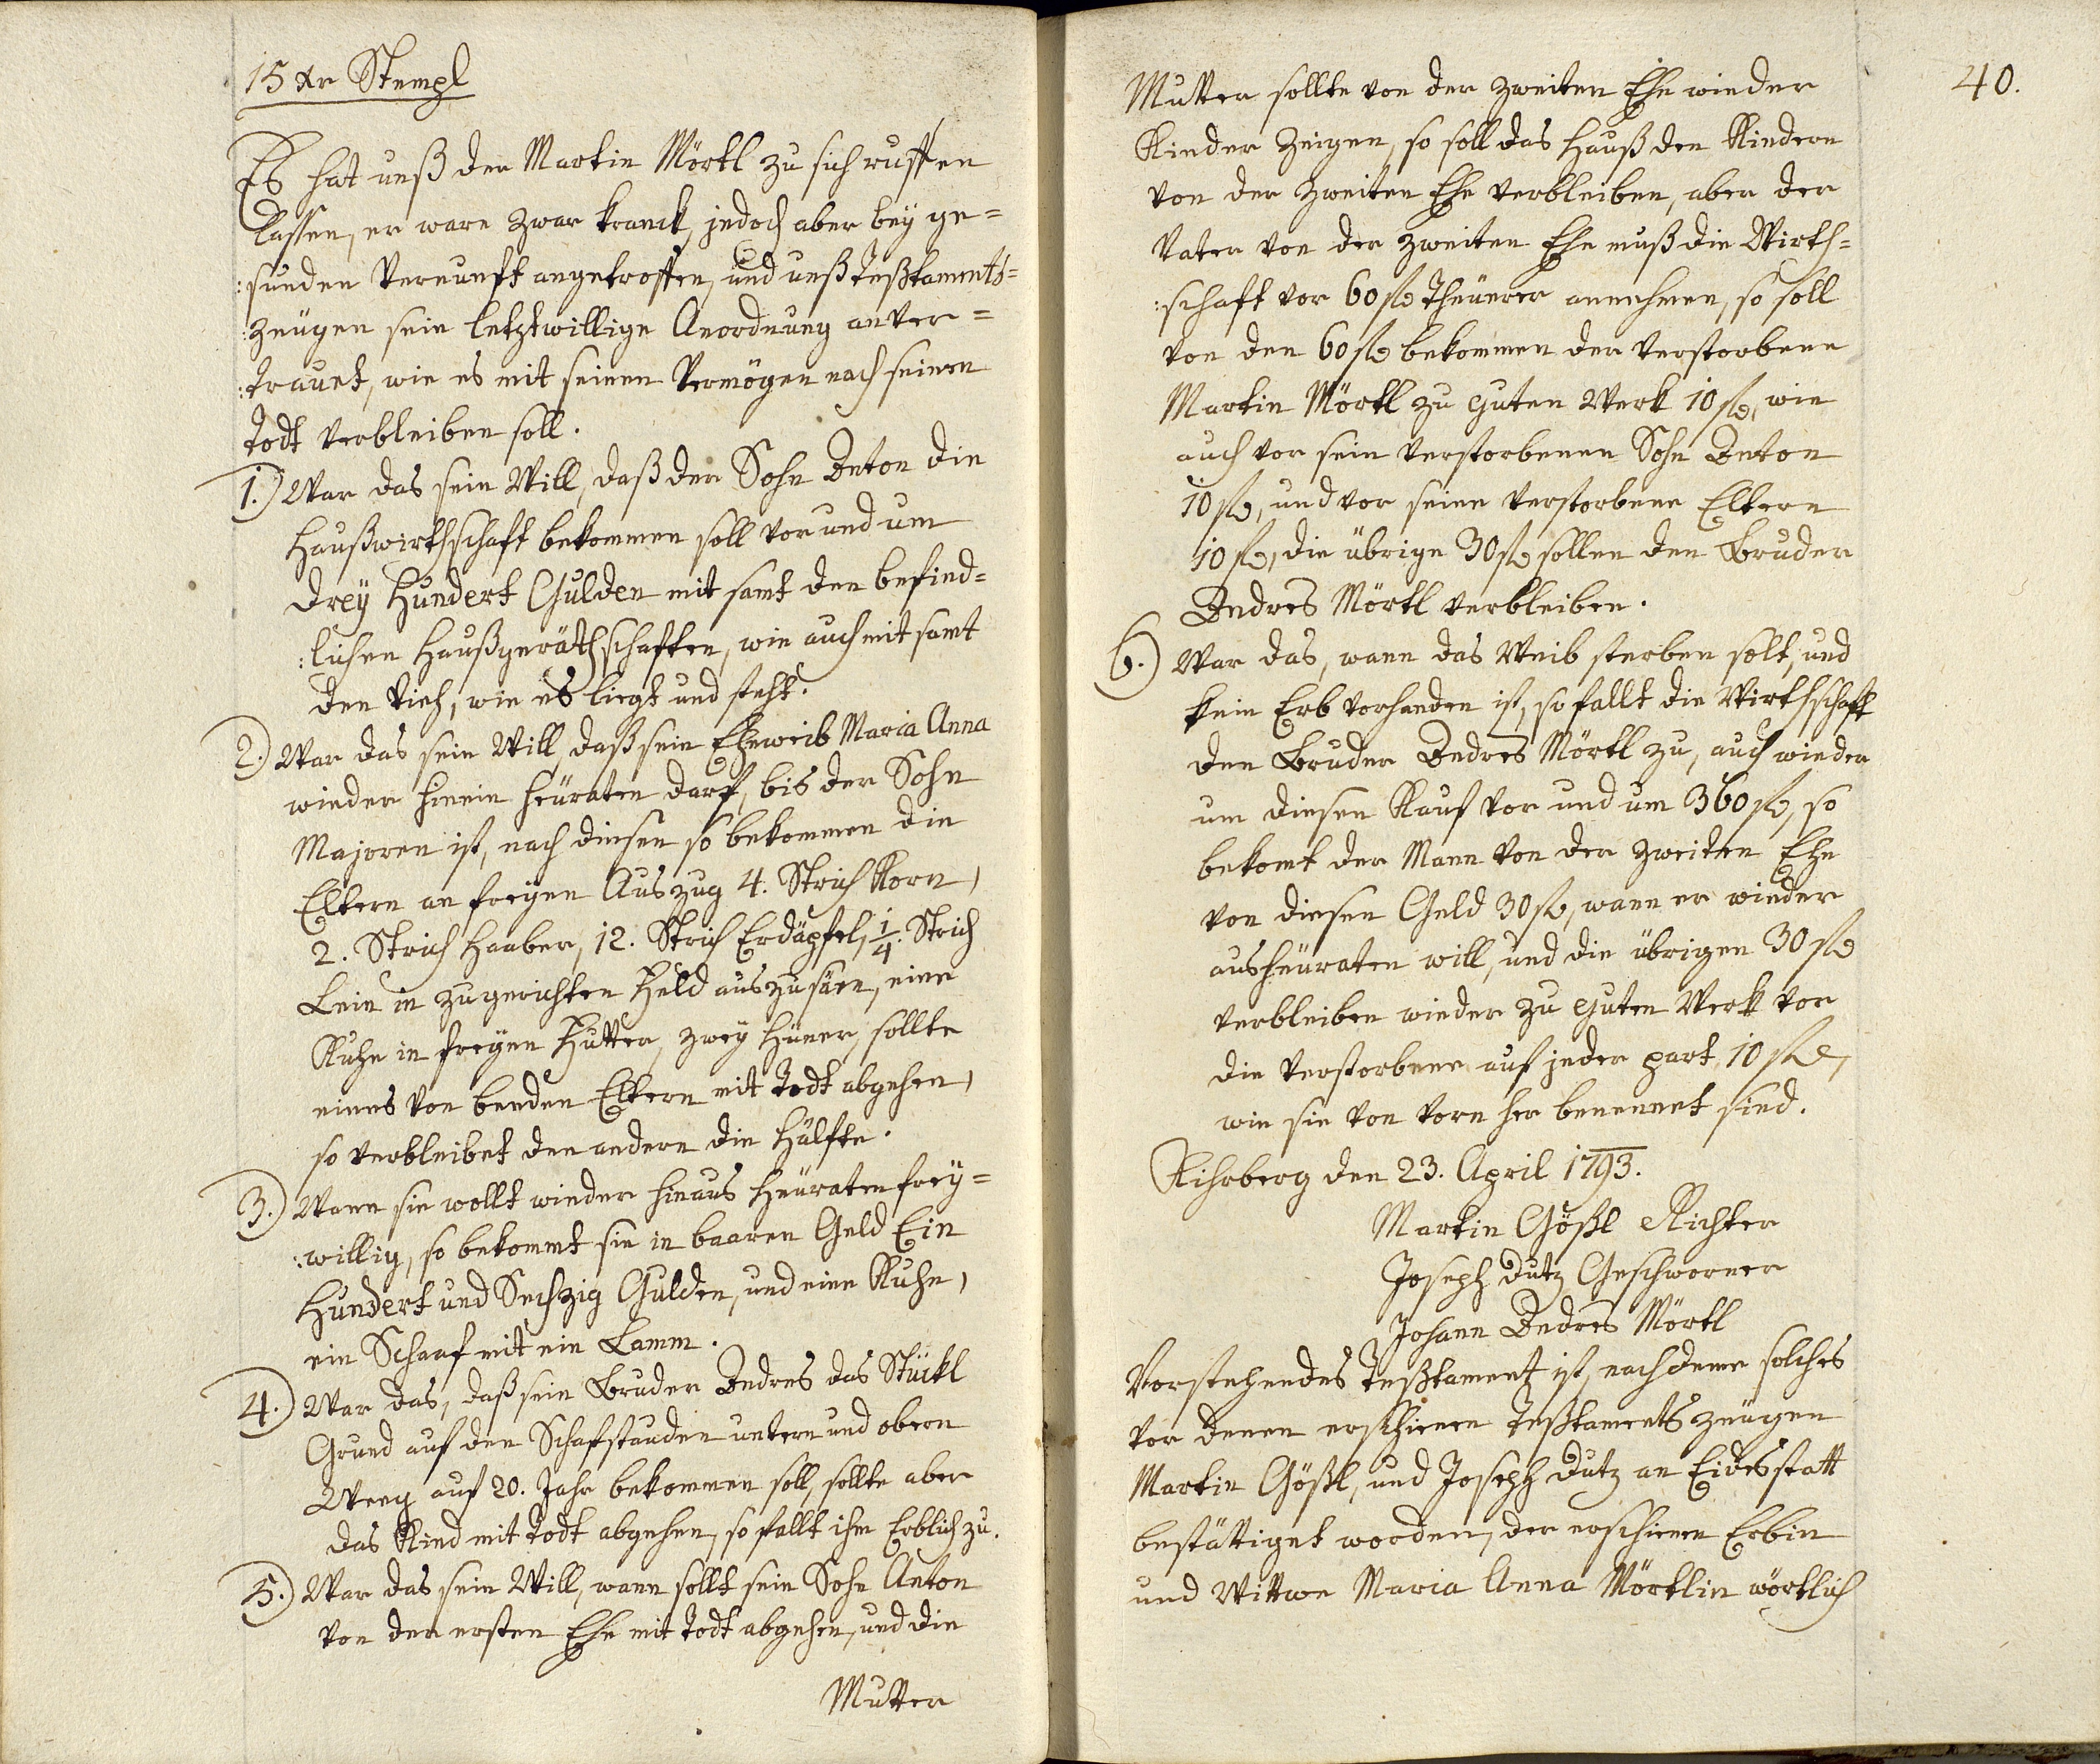 15 xr Stempl
Es hat unß der Martin Mörtl zu sich ruffen
lassen, er ware zwar kranck, jedoch aber bey ge=
:sunden Vernunft angetroffen, und unß Teßtaments=
:zeugen sein letztwillige Anordnung anver=
:trauet, wie es mit seinen Vermögen nach seinen
Todt verbleiben soll.
1.) War das sein Will, daß der Sohn Anton die
Haußwirthschaft bekommen soll vor und um
drey Hundert Gulden mit samt den befind=
:lichen Haußgeräthschaften, wie auch mit samt
den Vieh, wie es liegt und steht.
2.) War das sein Will, daß sein Eheweib Maria Anna
wieder hinein heuraten darf, bis der Sohn
Majoren ist, nach diesen so bekommen die
Eltern an freyen Auszug 4. Strich Korn,
2. Strich Haaber, 12. Strich Erdäpfel, 1/4. Strich
Lein in zugerichten Feld auszusäen, eine
Kuhe in freyen Futter, zwey Hüner, sollte
eines von beeden Eltern mit Todt abgehen,
so verbleibet den andern die Hälfte.
3.) Wann sie wollt wieder hinaus heuraten frey=
:willig, so bekommt sie in baaren Geld Ein
Hundert und Sechzig Gulden, und eine Kuhe,
ein Schaaf mit ein Lamm.
4.) War das, daß sein Bruder Andres das Stückl
Grund auf den Schafstauden untern und obern
Weeg auf 20. Jahr bekommen soll, sollte aber
das Kind mit Todt abgehen, so fallt ihm Erblich zu.
5.) War das sein Will, wann sollt sein Sohn Anton
von der ersten Ehe mit Todt abgehen, und die
Mutter
40.
Mutter sollte von der zweiten Ehe wieder
Kinder Zeigen, so soll das Hauß den Kindern
von der zweiten Ehe verbleiben, aber der
Vater von der zweiten Ehe muß die Wirth=
:schaft vor 60 fl Theuerer annehmen, so soll
von den 60 fl bekommen der verstorbene
Martin Mörtl zu guten Werk 10 fl, wie
auch vor sein verstorbenen Sohn Anton
10 fl, und vor seine verstorbene Eltern
10 fl, die übrige 30 fl sollen den Bruder
Andres Mörtl verbleiben.
6.) War das, wann das Weib sterben solt, und
kein Erb vorhanden ist, so fallt die Wirthschaft
den Bruder Andres Mörtl zu, auch wieder
um diesen Kauf vor und um 360 fl, so
bekomt der Mann von der zweiten Ehe
von diesen Geld 30 fl, wann er wieder
ausheuraten will, und die übrigen 30 fl
verbleiben wieder zu guten Werk vor
die verstorbene auf jeder part 10 fl,
wie sie von vorn her benennet sind.
Kihrberg den 23. April 1793.
Martin Gößl Richter
Joseph Dutz Geschworner
Johann Andres Mörtl
Vorstehendes Teßtament ist, nachdeme solches
vor denen erschienen Teßtaments zeugen
Martin Gößl, und Joseph Dutz an Eidesstatt
bestättiget worden, der erschienen Erbin
und Wittwe Maria Anna Mörtlin wörtlich